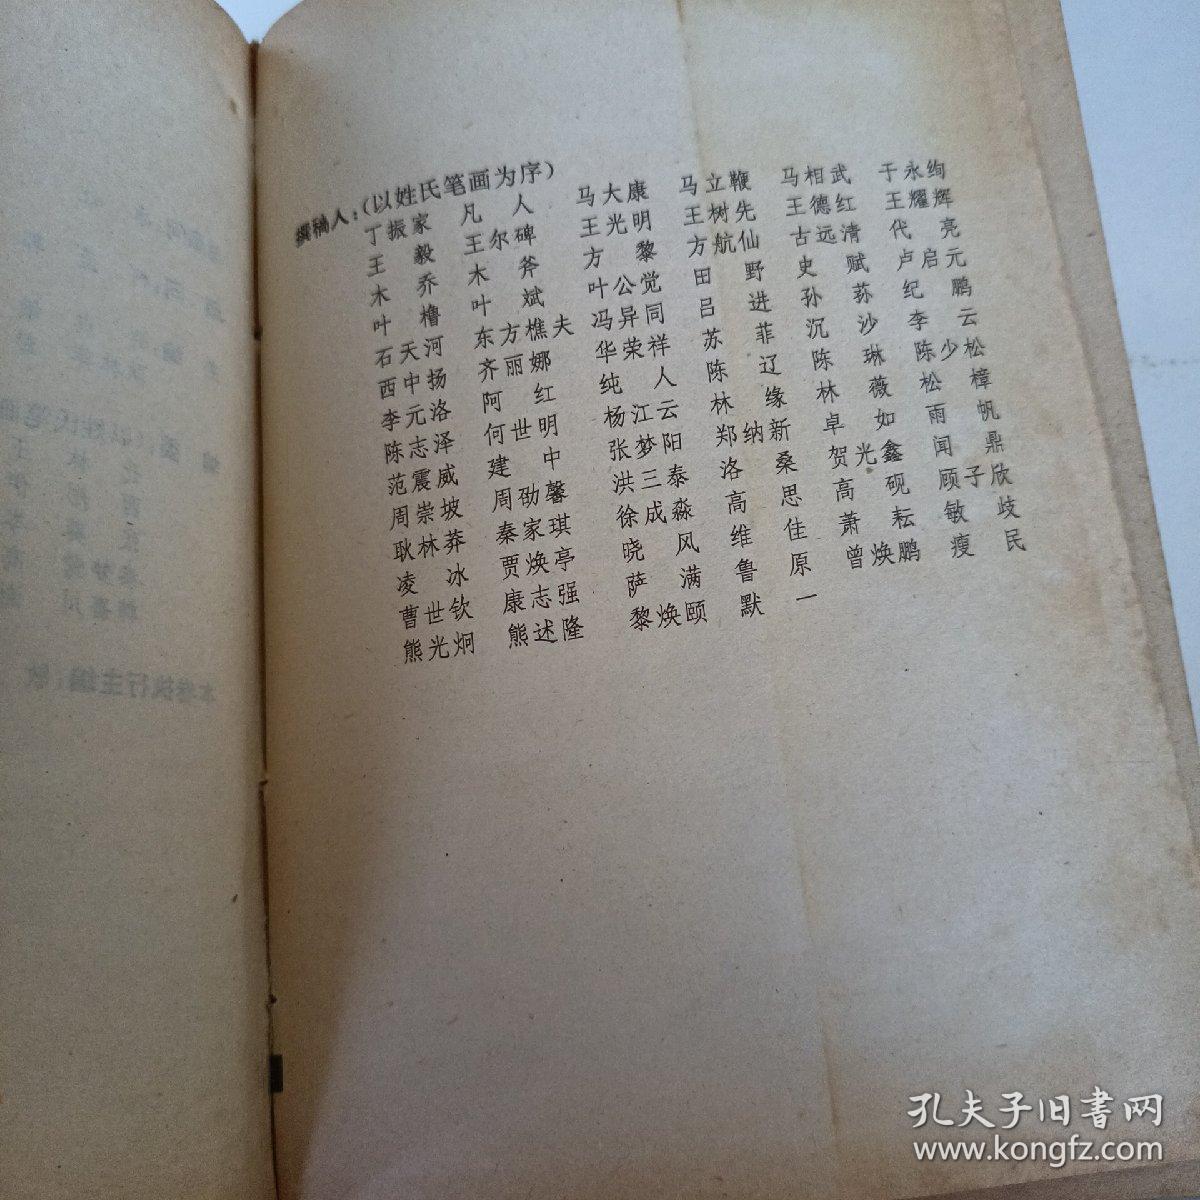 撰稿人：(以姓氏笔画为序)
丁振家 凡人 马大康 马立鞭 马相武 于永绚
王毅 王尔碑 王光明 王树先 王德红 王耀辉
木乔 木斧 方黎 方航仙 古远清 代亮
叶橹 叶斌 叶公觉 田野 史赋 卢启元
石天河 东方樵夫 冯异同 吕进 孙荪 纪鹏
西中扬 齐丽娜 华荣祥 苏菲 沉沙 李云
李元洛 阿红 纯人 陈辽 陈琳 陈少松
陈志泽 何世明 杨江云 林缘 林薇 松樟
范震威 建中 张梦阳 郑纳新 卓如 雨帆
周崇坡 周劭馨 洪三泰 洛桑 贺光鑫 闻鼎
耿林莽 秦家琪 徐成淼 高思 高砚 顾子欣
凌冰 贾焕亭 晓风 维佳 萧耘 敏歧
曹世钦 康志强 萨满 鲁原 曾焕鹏 瘦民
熊光炯 熊述隆 黎焕颐 默一
孔夫子旧书网
www.kongfz.com